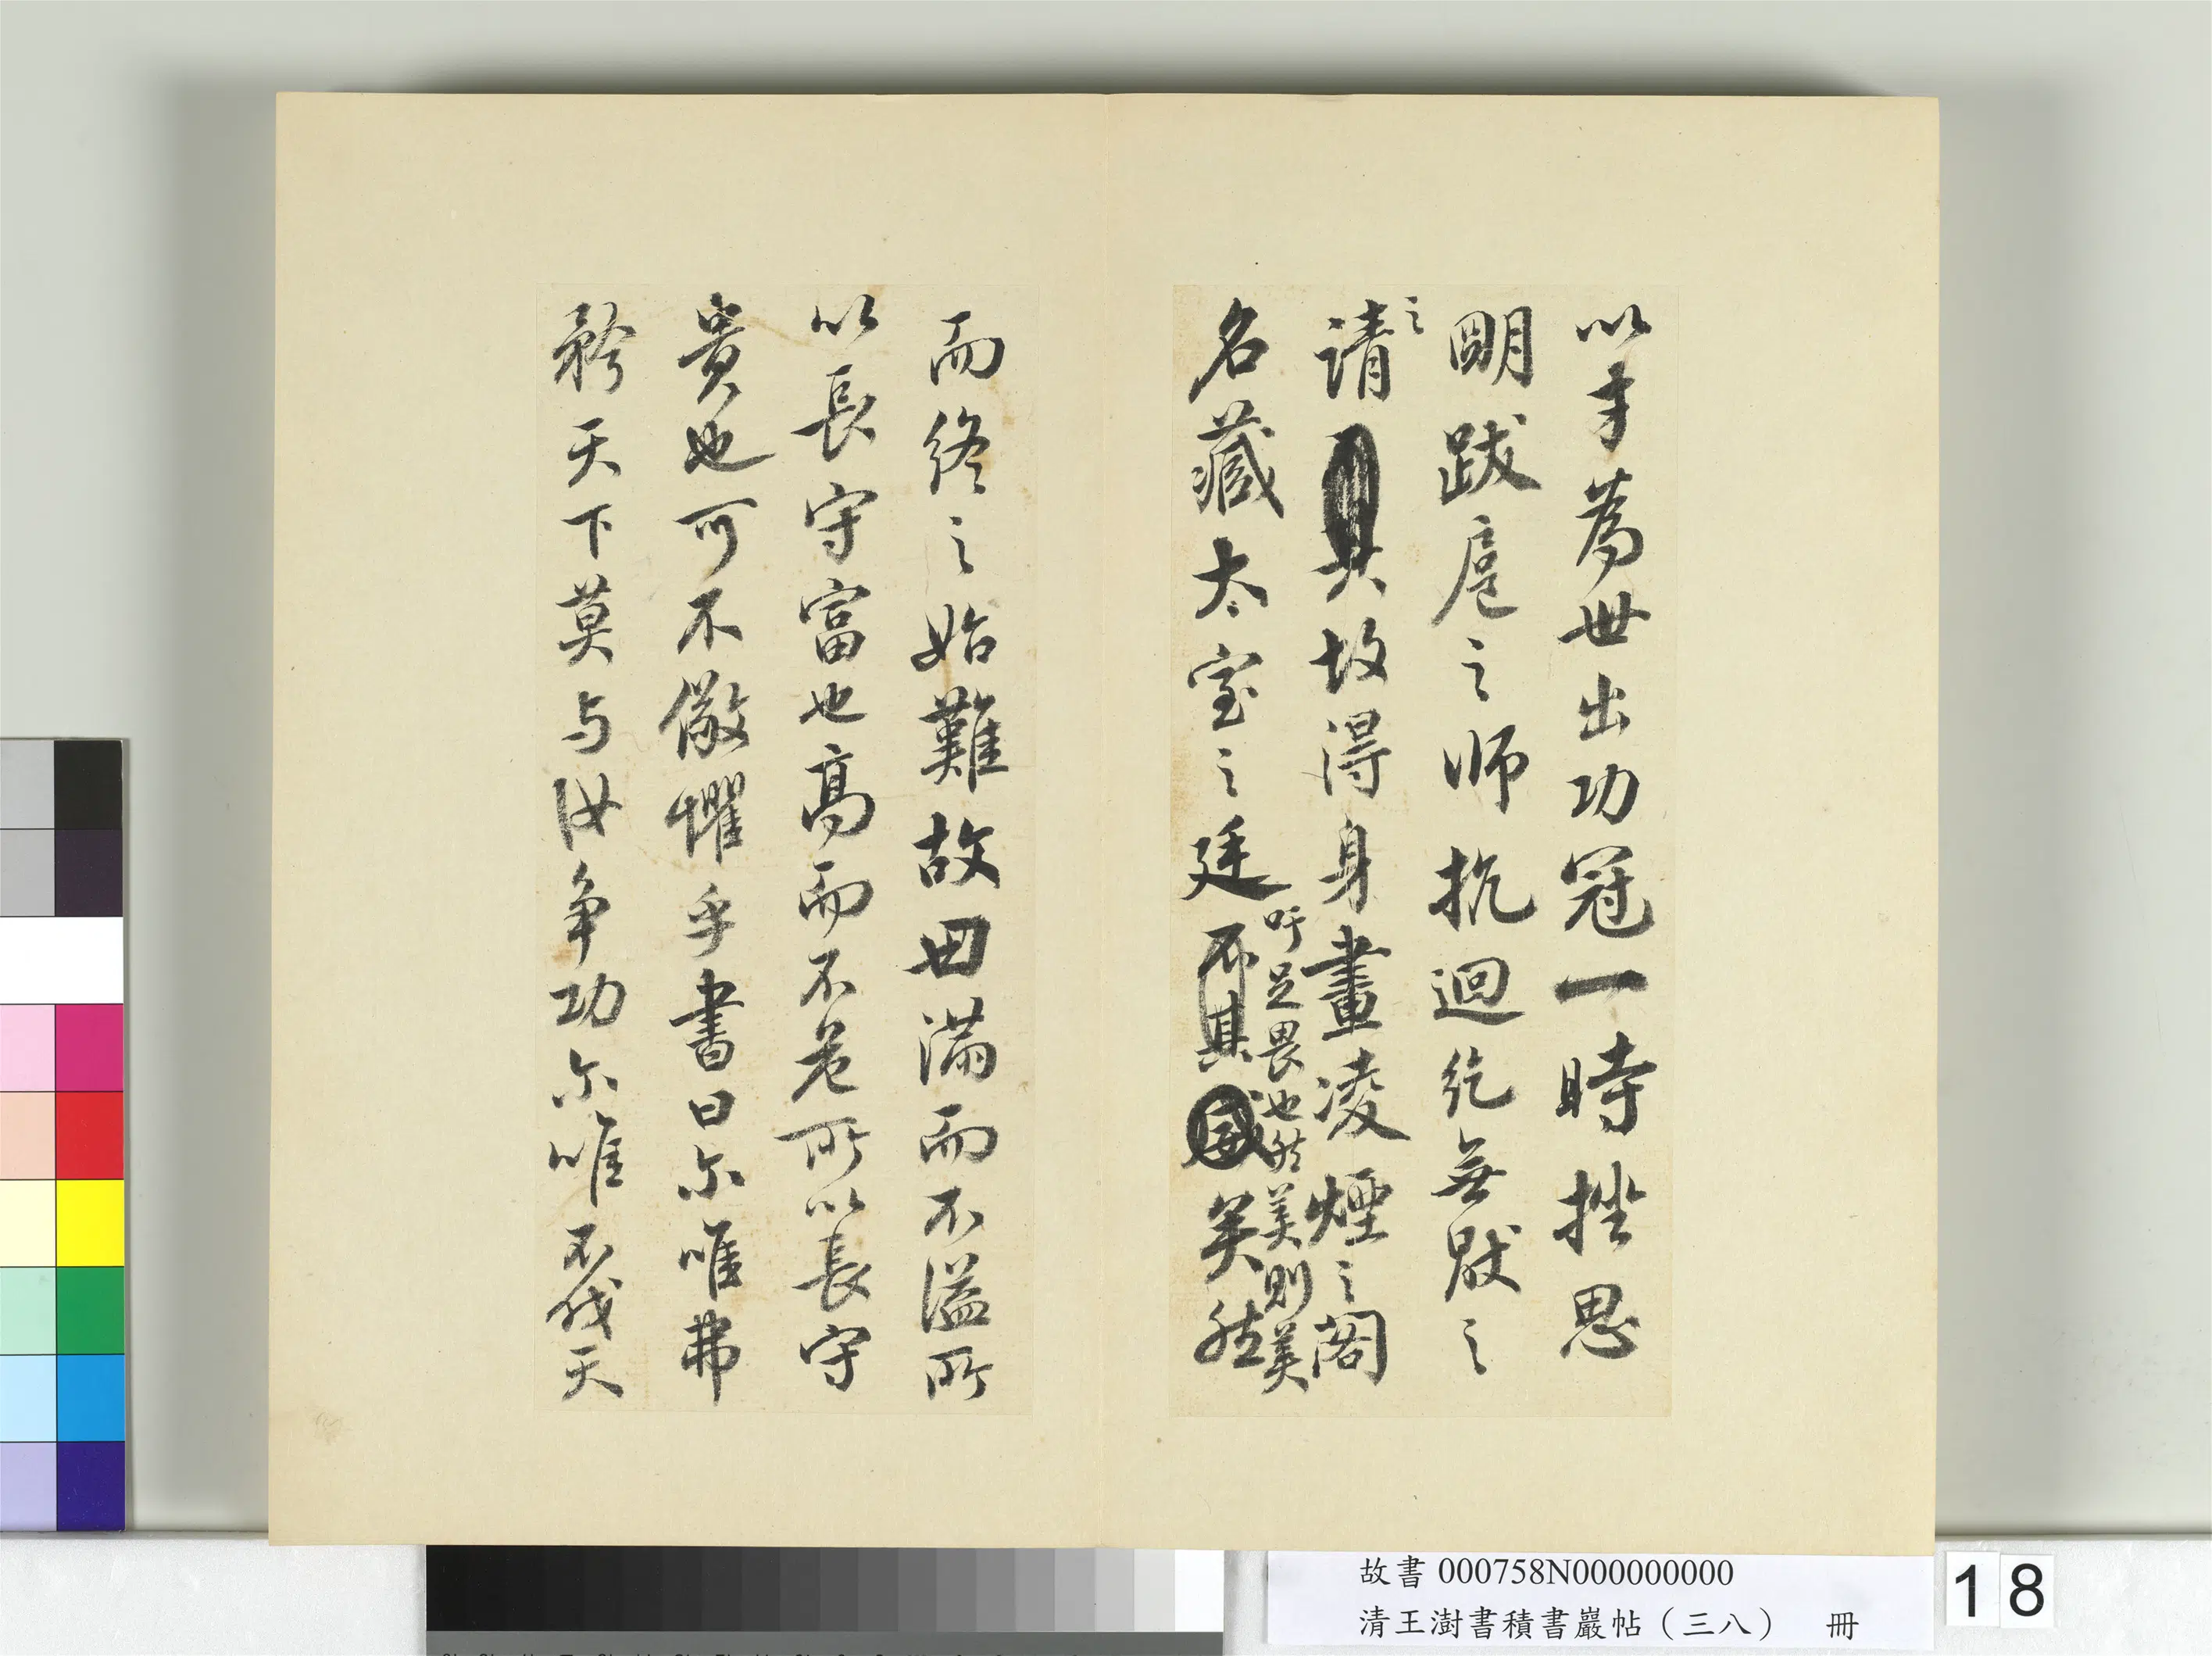 以才為世出功冠一時挫思
明跋扈之師抗迴紇無厭之
請之其故得身畫凌煙之閣
名藏太室之廷不其盛矣然
吁足畏也然美則美
而終之始難故曰滿而不溢所
以長守富也高而不危所以長守
貴也可不儆懼乎書曰尔唯弗
矜天下莫与汝争功尔唯不伐天
故書 000758N000000000
清王澍書積書巖帖（三八） 冊
18